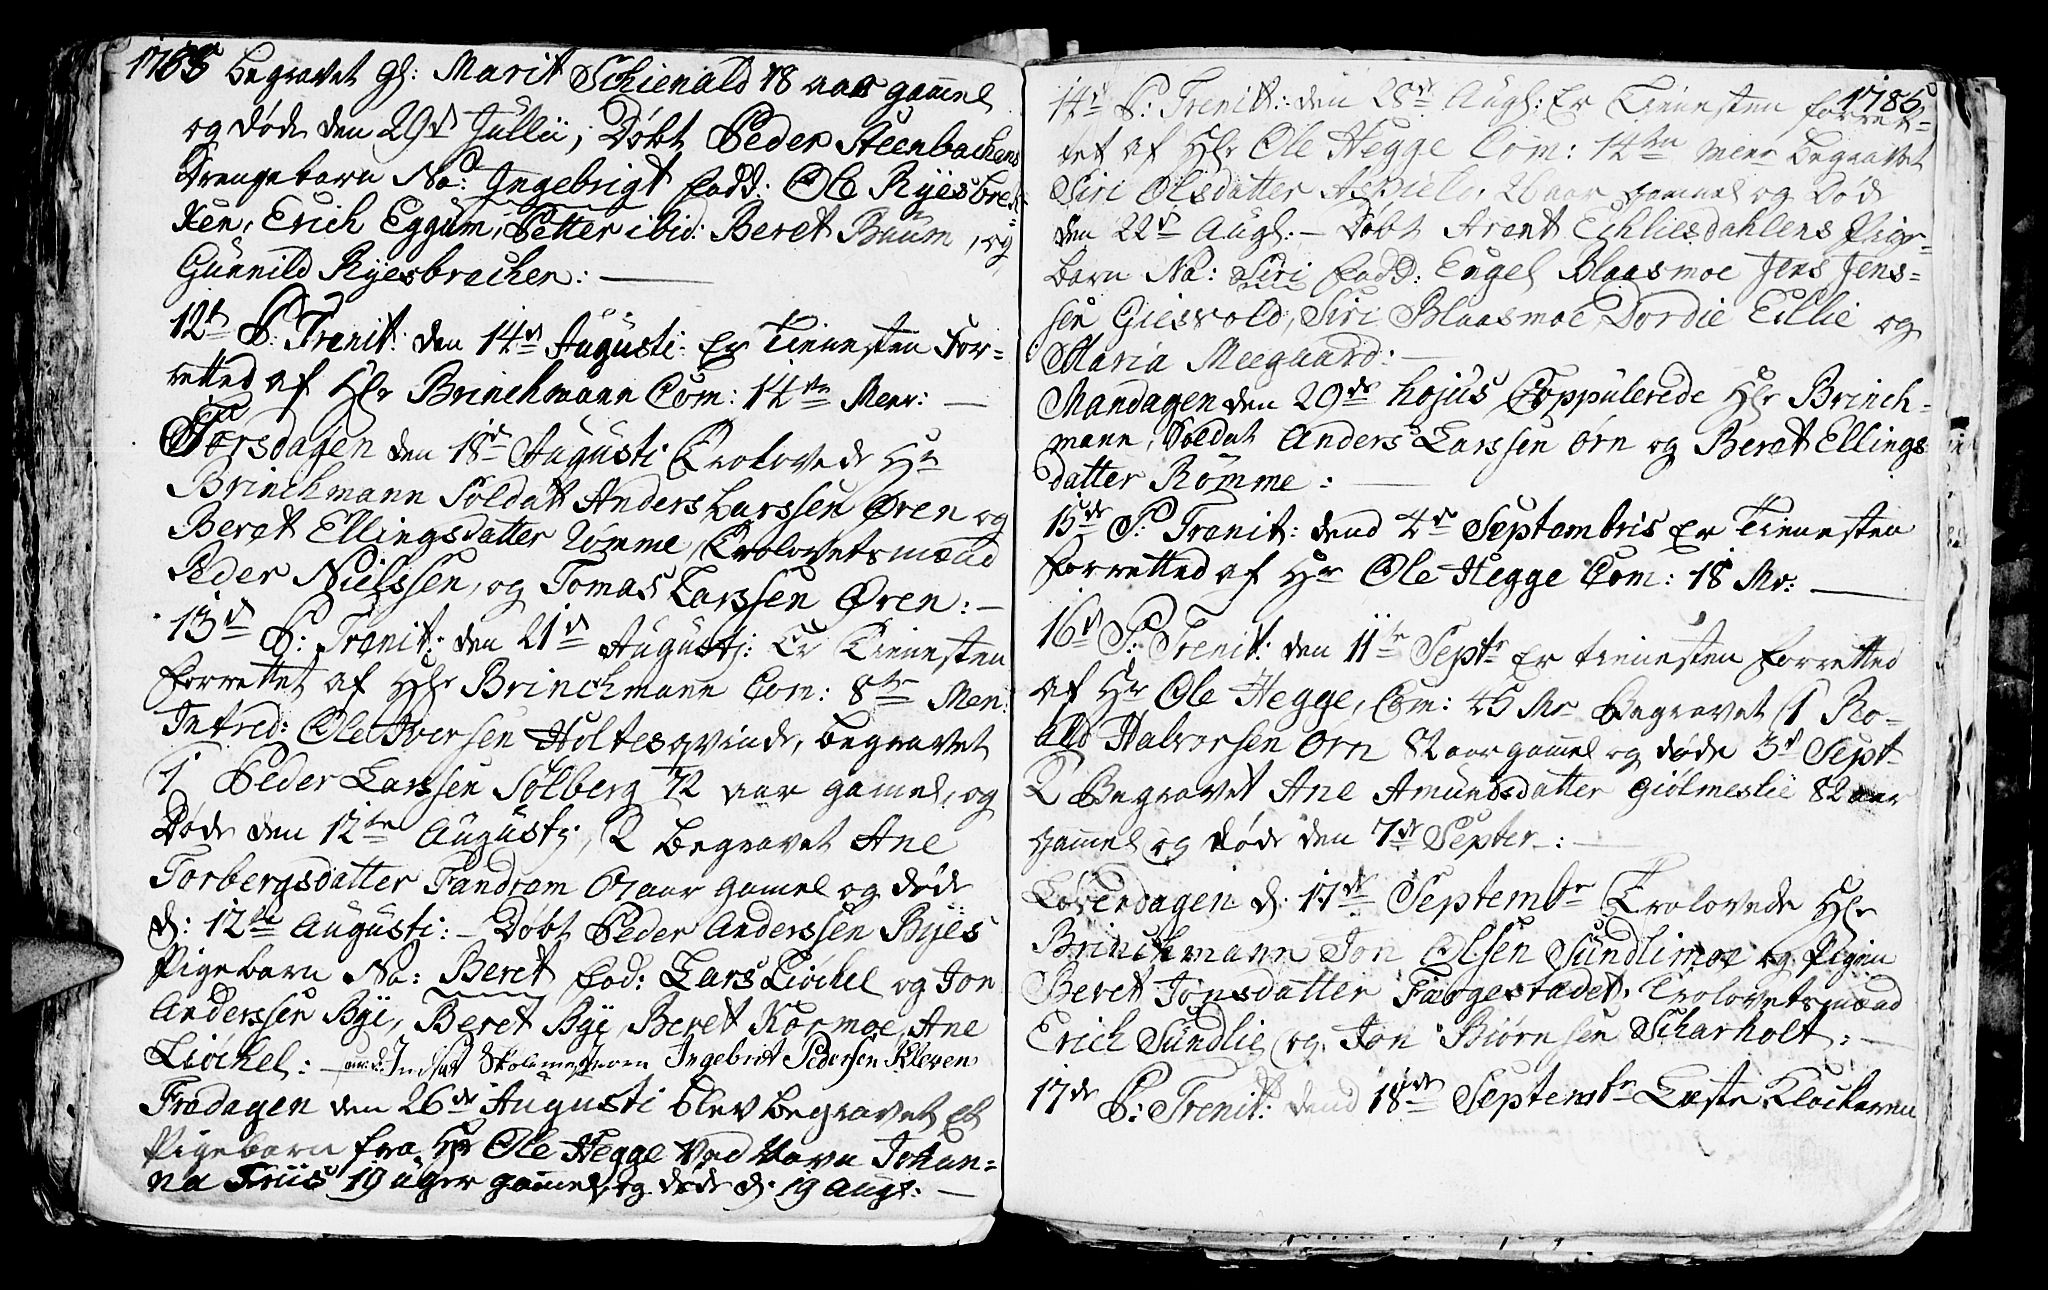 1785 begravet gl: Marit Schienald 78 aar gamel
og døde den 29d Jullii, Døbt Peder Steenbachens
Drengebarn No: Ingebrigt Fadd: Ole Ryesbrek-
ken, Erich Eggum, Petter ibid: Beret Buum, og
Gunnild Ryesbrachen: —
12te P: Trenit: den 14de Augusti: Er Tienesten For-
retted af Hr Brinchmann Com: 14ten Menr: —
Torsdagen den 18de Augusti Trolovede Hr
Brinchmann Soldat Anders Larssen Øren og
Beret Ellingsdatter Rømme, Trolovetsmænd
Peder Nielssen, og Tomas Larssen Øren: —
13de P: Trenit: den 21de Augustj: Er Tienesten
Forrettet af Hr Brinchmann Com: 8te Men:
Introd: Ole Iversen Holtes qvinde, begravet
1 Peder Larssen Solberg 72 aar gamel, og
Døde den 12te Augustj, 2 begravet Ane
Torbergsdatter Fandrem 67 aar gamel og døde
d: 12te Augusti: — Døbt Peder Anderssen Byes
Pigebarn No: Beret Fad: Lars Liøchel og Jon
Anderssen Bye, Beret Bye, Beret Kormoe, Ane
Liøchel: — Indsat Skolemesteren Ingebrigt Pedersen Kleven
Fredagen den 26de Augusti blev begravet et
Pigebarn fra Hr Ole Hegge Ved Navn Johan-
na Friis 19 uger gammel, og døde d: 19 Augt: —
1785
14de P: Trenit: den 28de Augs: Er Tienesten forret-
tet af Hr Ole Hegge Com: 14ten Menr begravet
Siri Olsdatter 26 aar gammel og Døde
den 22de Augs: — Døbt Arent Echliesdahlens Pige-
barn No: Siri Fadd: Engel Blaasmoe Jens Jens-
sen Giesvold, Siri Blaasmoe, Dordie Eillie og
Maria Meegaard: —
Mandagen den 29de hojus Coppulerede Hr Brinch-
mann, Soldat Anders Larssen Ørn og Beret Ellings
datter Rømme: —
15de P: Trenit: dend 4de Septembris Er Tienesten
Forretted af Hr Ole Hegge Com: 18 Mr: —
16de P: Trenit: den 11te Septr Er tienesten Forretted
af Hr Ole Hegge, Com: 45 Mr Begravet 1 Ro-
ald Halvorsen Ørn 82 aar gamel og døde 3de Septr
2 Begravet Ane Amundsdatter Giølmeslie 82 aar
gammel og døde den 7de Septer: —
Løverdagen d: 17de Septembr Trolovede Hr
Brinchmann Jon Olsen Sundlimoe og Pigen
Beret Jonsdatter Færgestadet, Trolovetsmænd
Erich Sundlie og Jon Biørnsen Scharholt: —
17de P: Trenit: dend 18de Septembr Læste Klockeren